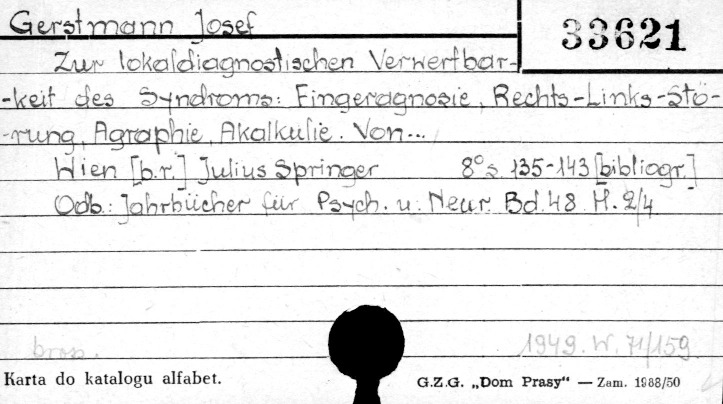 Gerstmann Josef
33621
Zur lokaldiagnostischen Verwertbar-
-keit des Syndroms: Fingeragnosie, Rechts-Links-Stö-
-rung, Agraphie, Akalkulie. Von...
Wien [b.r.] Julius Springer 8° s. 135-143 [bibliogr.]
Odb.: Jahrbücher für Psych. u. Neur. Bd. 48 H. 2/4
brosz.
1949. W. 71/159
Karta do katalogu alfabet.
G.Z.G. „Dom Prasy" — Zam. 1988/50